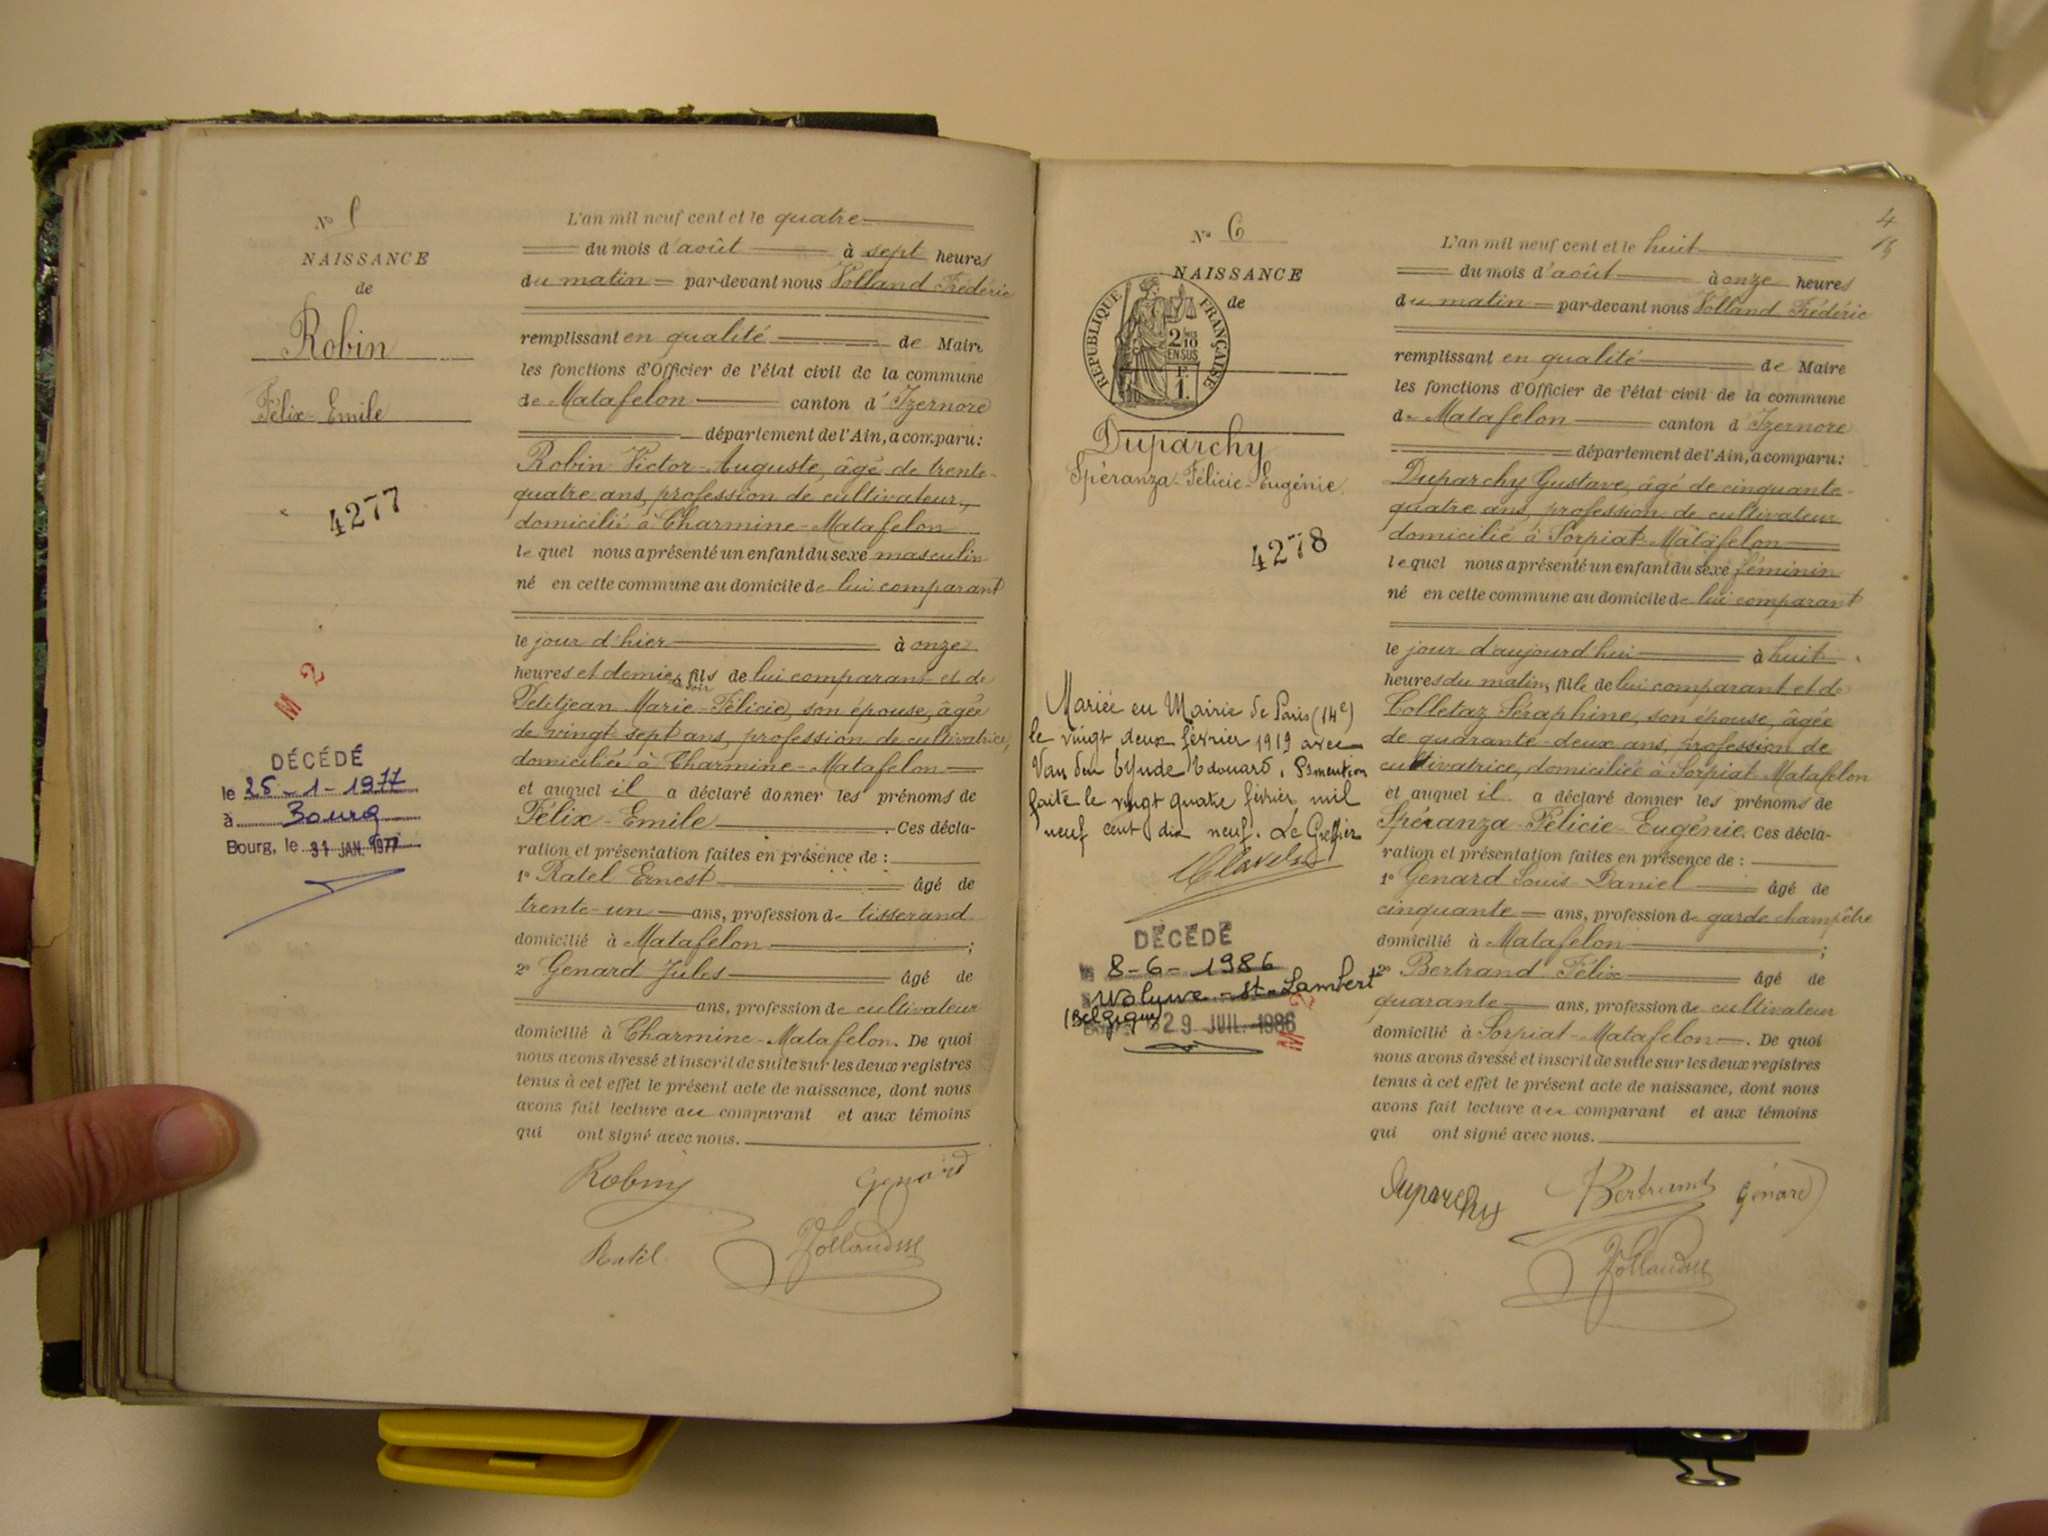 N° 5
NAISSANCE
de
Robin
Félix-Emile
4277
M 2
DÉCÉDÉ
le 25-1-1977
à Bourg
Bourg, le 31 JAN. 1977
L'an mil neuf cent et le quatre
du mois d'août à sept heures
du matin par-devant nous Volland Frédéric
remplissant en qualité de Maire
les fonctions d'Officier de l'état civil de la commune
de Matafelon canton d'Izernore
département de l'Ain, a comparu:
Robin Victor-Auguste, âgé de trente-
quatre ans, profession de cultivateur,
domicilié à Charmine-Matafelon
le quel nous a présenté un enfant du sexe masculin
né en cette commune au domicile de lui comparant
le jour d'hier à onze
heures et demie, du soir fils de lui comparant et de
Petitjean Marie-Félicie, son épouse, âgée
de vingt-sept ans, profession de cultivatrice,
domiciliée à Charmine-Matafelon
et auquel il a déclaré donner les prénoms de
Félix-Emile Ces décla-
ration et présentation faites en présence de :
1° Ratel Ernest âgé de
trente-un ans, profession de tisserand
domicilié à Matafelon ;
2° Genard Jules âgé de
ans, profession de cultivateur
domicilié à Charmine-Matafelon. De quoi
nous avons dressé et inscrit de suite sur les deux registres
tenus à cet effet le présent acte de naissance, dont nous
avons fait lecture au comparant et aux témoins
qui ont signé avec nous.
Robin Genard
Ratel Volland
4
N° 6
NAISSANCE
de
RÉPUBLIQUE FRANÇAISE
2/10
EN SUS
1.
Duparchy
Spéranza-Félicie-Eugénie
4278
Mariée en Mairie de Paris (14e)
le vingt deux février 1919 avec
Van den Eynde Edouard. Pr mention
faite le vingt quatre février mil
neuf cent dix neuf. Le Greffier
DÉCÉDÉ
8-6-1986
Woluwe-St-Lambert
(Belgique)
29 JUIL. 1986
M 2
L'an mil neuf cent et le huit
du mois d'août à onze heures
du matin par-devant nous Volland Frédéric
remplissant en qualité de Maire
les fonctions d'Officier de l'état civil de la commune
de Matafelon canton d'Izernore
département de l'Ain, a comparu:
Duparchy Gustave, âgé de cinquante-
quatre ans, profession de cultivateur
domicilié à Sorpiat-Matafelon
le quel nous a présenté un enfant du sexe féminin
né en cette commune au domicile de lui comparant
le jour d'aujourd'hui à huit
heures du matin, fille de lui comparant et de
Colletaz Séraphine, son épouse, âgée
de quarante-deux ans, profession de
cultivatrice, domiciliée à Sorpiat-Matafelon
et auquel il a déclaré donner les prénoms de
Spéranza-Félicie-Eugénie. Ces décla-
ration et présentation faites en présence de :
1° Genard Louis-Daniel âgé de
cinquante ans, profession de garde champêtre
domicilié à Matafelon ;
2° Bertrand Félix âgé de
quarante ans, profession de cultivateur
domicilié à Sorpiat-Matafelon. De quoi
nous avons dressé et inscrit de suite sur les deux registres
tenus à cet effet le présent acte de naissance, dont nous
avons fait lecture au comparant et aux témoins
qui ont signé avec nous.
Duparchy Bertrand Genard
Volland